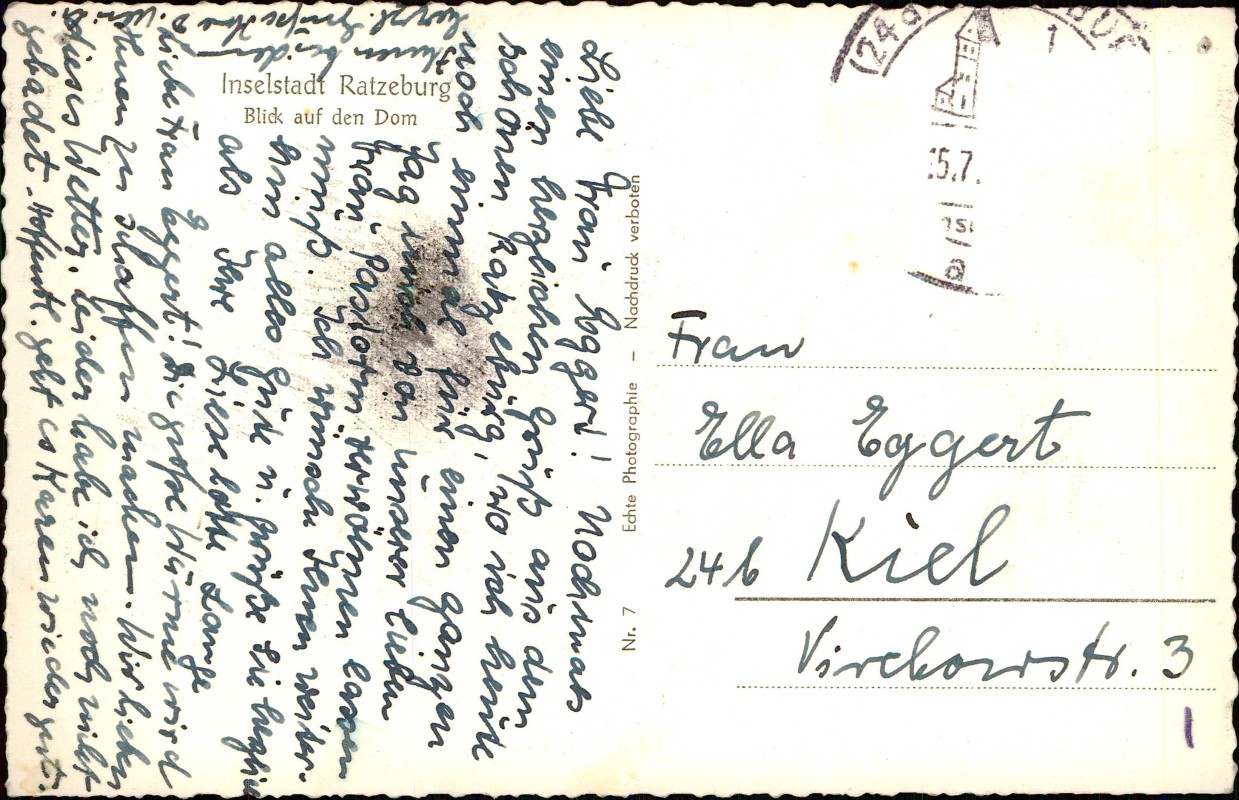 Inselstadt Ratzeburg
Blick auf den Dom
Liebe Frau Eggert! Nochmals
einen herzlichen Gruß aus dem
schönen Ratzeburg, wo ich heute
noch einmal für einen ganzen
Tag mich von unserer lieben
Frau Pastorin verwöhnen lassen
muß. Ich wünsche Ihnen weiter-
hin alles Gute u. grüße Sie herzlich
als Ihre Liese lotte Lange
Liebe Frau Eggert! Die große Wärme wird
Ihnen zu schaffen machen. Wir lieben
dieses Wetter, leider habe ich noch nicht
gebadet. Hoffentl. geht es Karen wieder gut.
Ihnen beiden
herzl. Grüße Ihre
Echte Photographie – Nachdruck verboten
Nr. 7
(24a
15.7.
Frau
Ella Eggert
24b Kiel
Virchowstr. 3